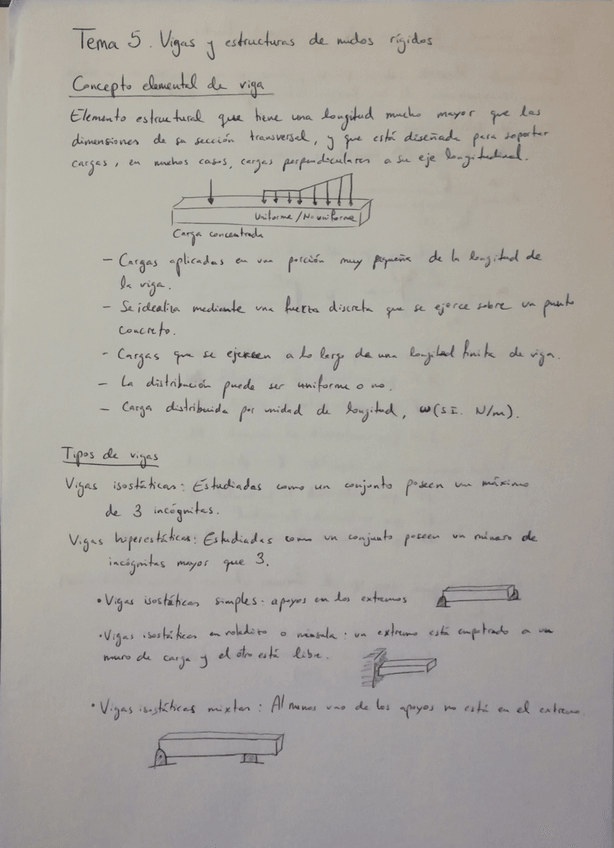 Tema 5. Vigas y estructuras de nudos rígidos
Concepto elemental de viga
Elemento estructural que tiene una longitud mucho mayor que las
dimensiones de su sección transversal, y que está diseñada para soportar
cargas, en muchos casos, cargas perpendiculares a su eje longitudinal.
Uniforme / No uniforme
Carga concentrada
- Cargas aplicadas en una porción muy pequeña de la longitud de
la viga.
- Se idealiza mediante una fuerza discreta que se ejerce sobre un punto
concreto.
- Cargas que se ejercen a lo largo de una longitud finita de viga.
- La distribución puede ser uniforme o no.
- Carga distribuida por unidad de longitud, w (S.I. N/m).
Tipos de vigas
Vigas isostáticas: Estudiadas como un conjunto poseen un máximo
de 3 incógnitas.
Vigas hiperestáticas: Estudiadas como un conjunto poseen un número de
incógnitas mayor que 3.
• Vigas isostáticas simples: apoyos en los extremos
• Vigas isostáticas en voladizo o ménsula: un extremo está empotrado a un
muro de carga y el otro está libre.
• Vigas isostáticas mixtas: Al menos uno de los apoyos no está en el extremo.